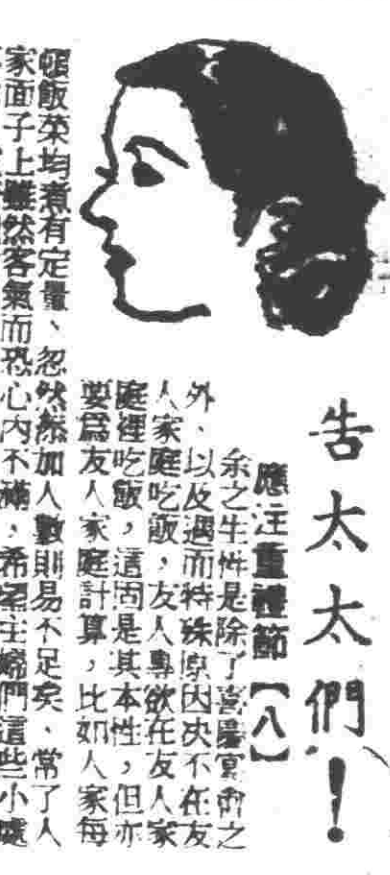 告太太們！
應注重禮節【八】
余之生性是除了喜慶宴會之
外、以及遇而特殊原因决不在友
人家庭吃飯，友人專欲在友人家
庭裡吃飯，這固是其本性，但亦
要爲友人家庭計算，比如人家每
頓飯菜均煮有定量、忽然添加人數則易不足矣、常了人
家面子上雖然客氣而恐心內不滿，希望主婦們這些小處